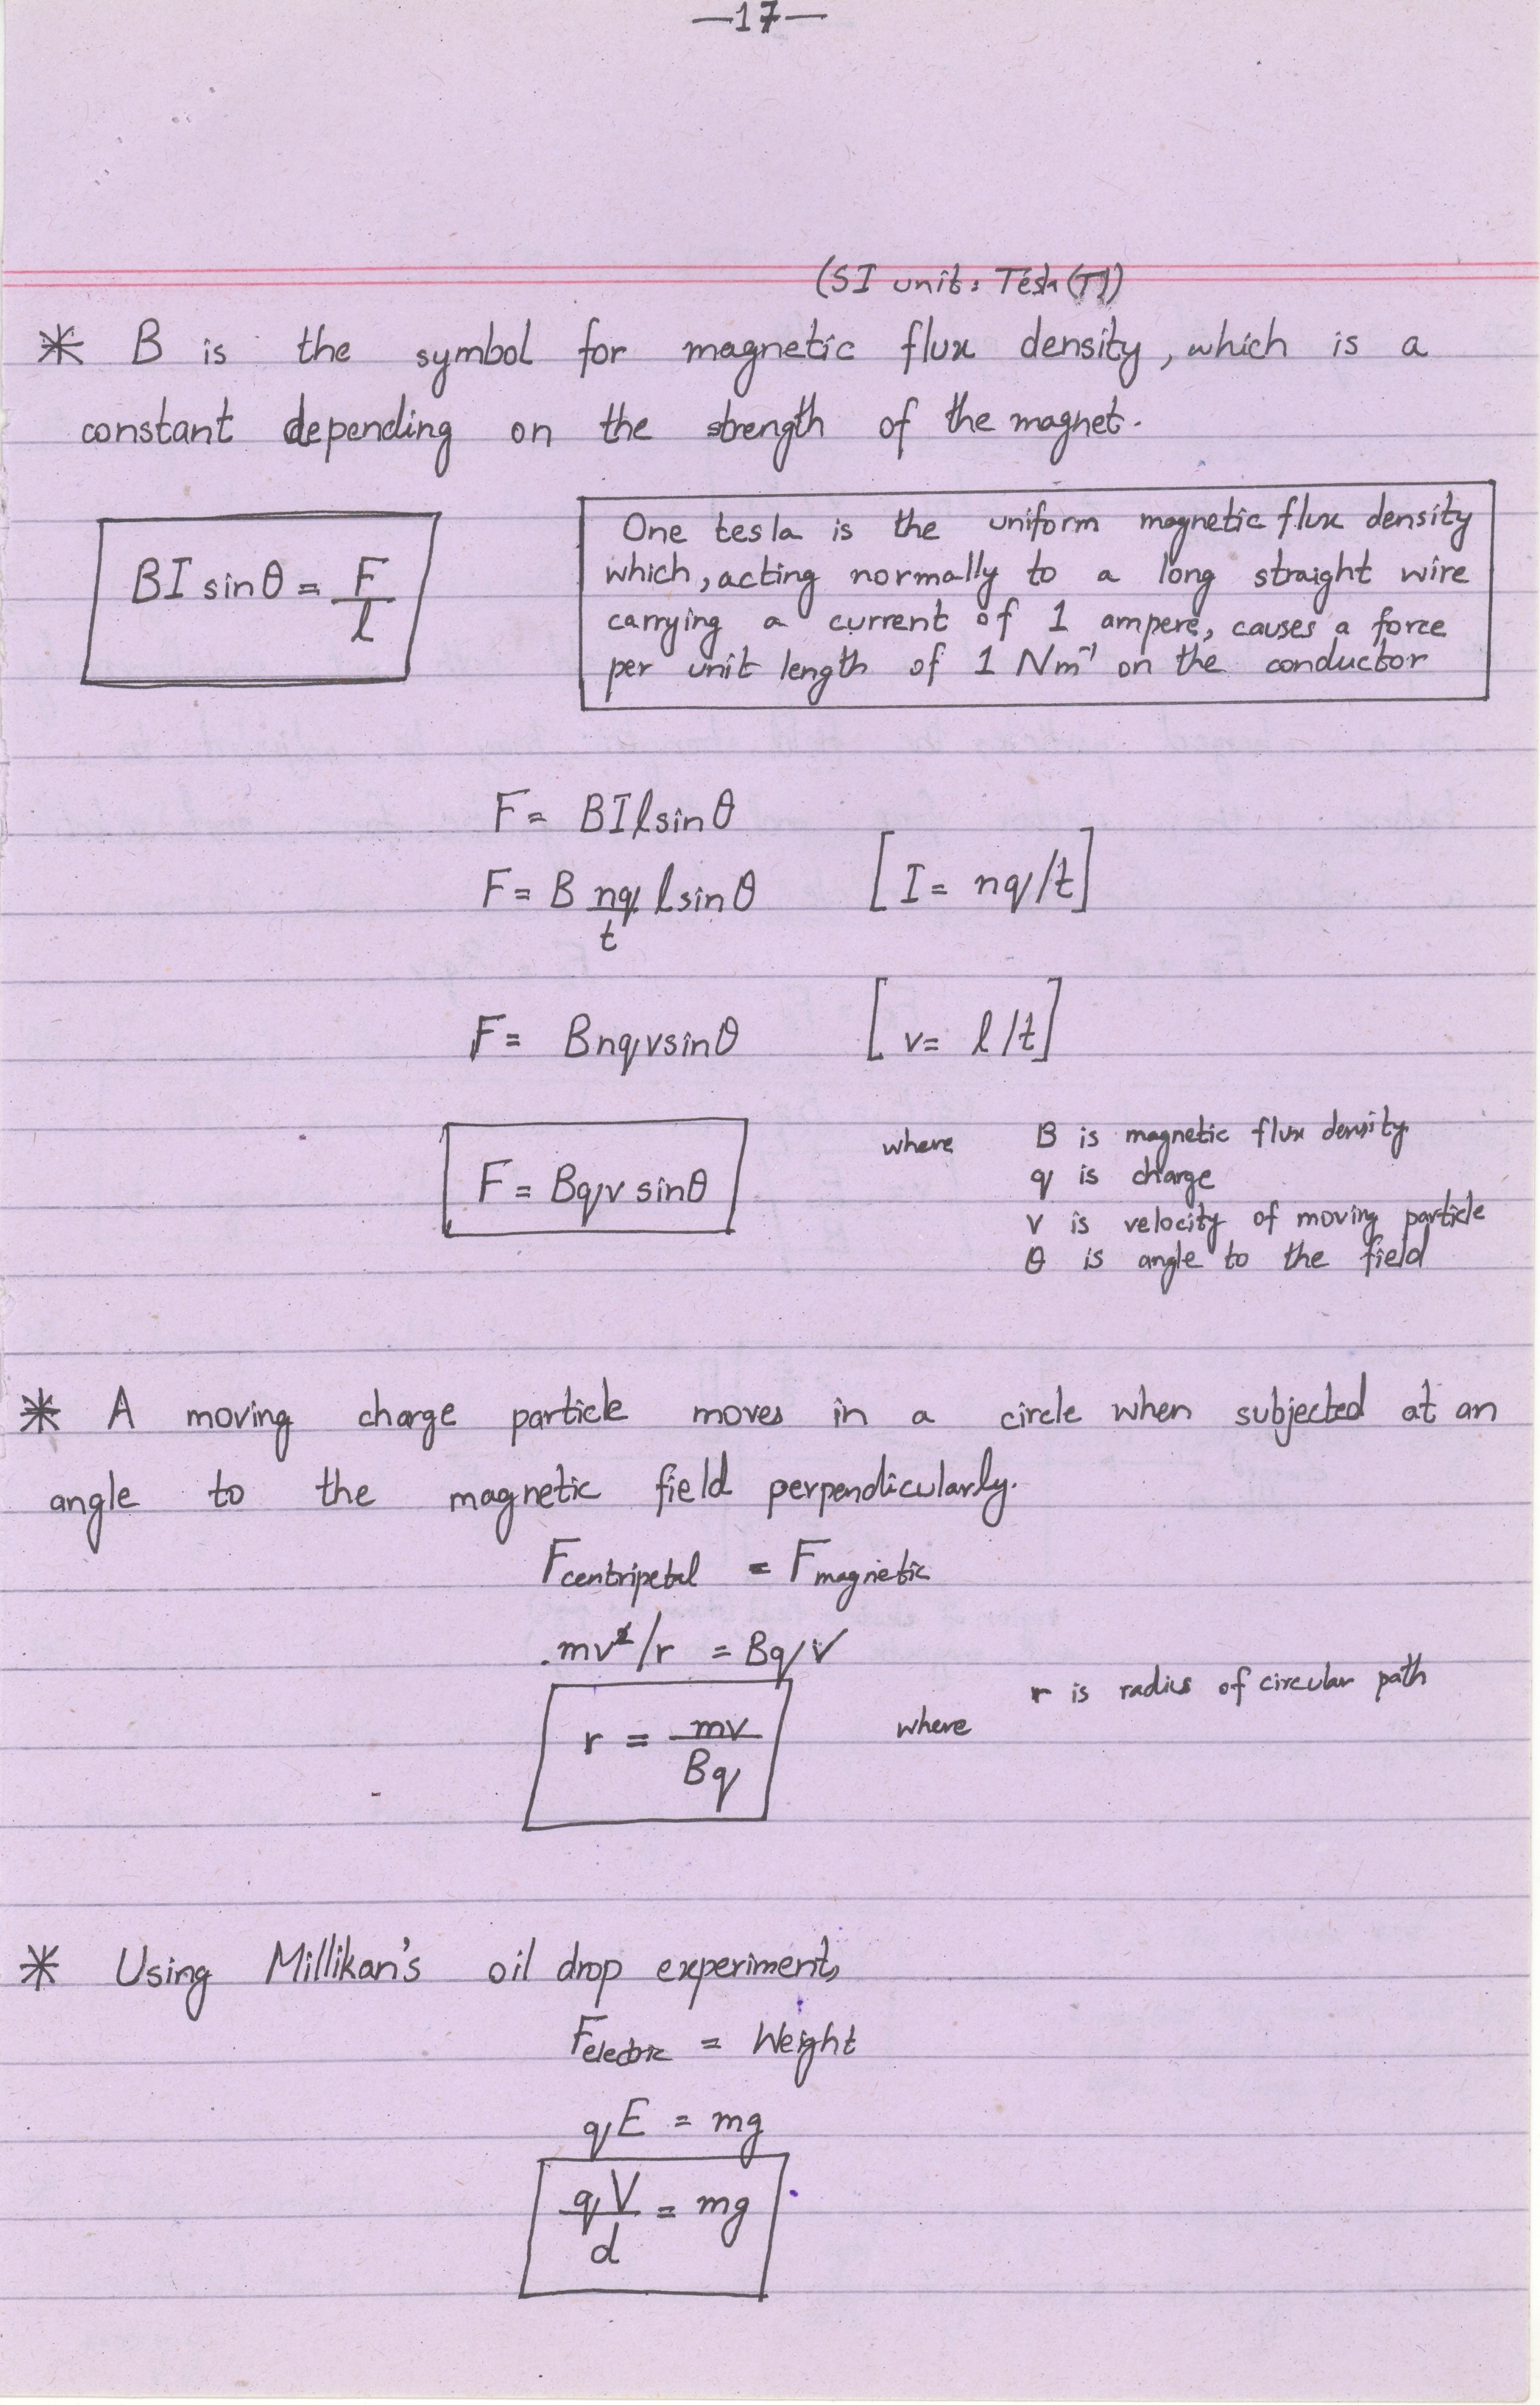 —17—
(SI unit: Tesla (T))
* B is the symbol for magnetic flux density, which is a
constant depending on the strength of the magnet.
BI sinθ = F/l
One tesla is the uniform magnetic flux density
which, acting normally to a long straight wire
carrying a current of 1 ampere, causes a force
per unit length of 1 Nm⁻¹ on the conductor
F = BIlsinθ
F = B nq/t lsinθ [I = nq/t]
F = Bnqvsinθ [v = l/t]
F = Bqv sinθ
where B is magnetic flux density.
q is charge
v is velocity of moving particle
θ is angle to the field
* A moving charge particle moves in a circle when subjected at an
angle to the magnetic field perpendicularly.
Fcentripetal = Fmagnetic
mv²/r = Bqv
r = mv/Bq
where r is radius of circular path
* Using Millikan's oil drop experiment,
Felectric = Weight
qE = mg
qV/d = mg